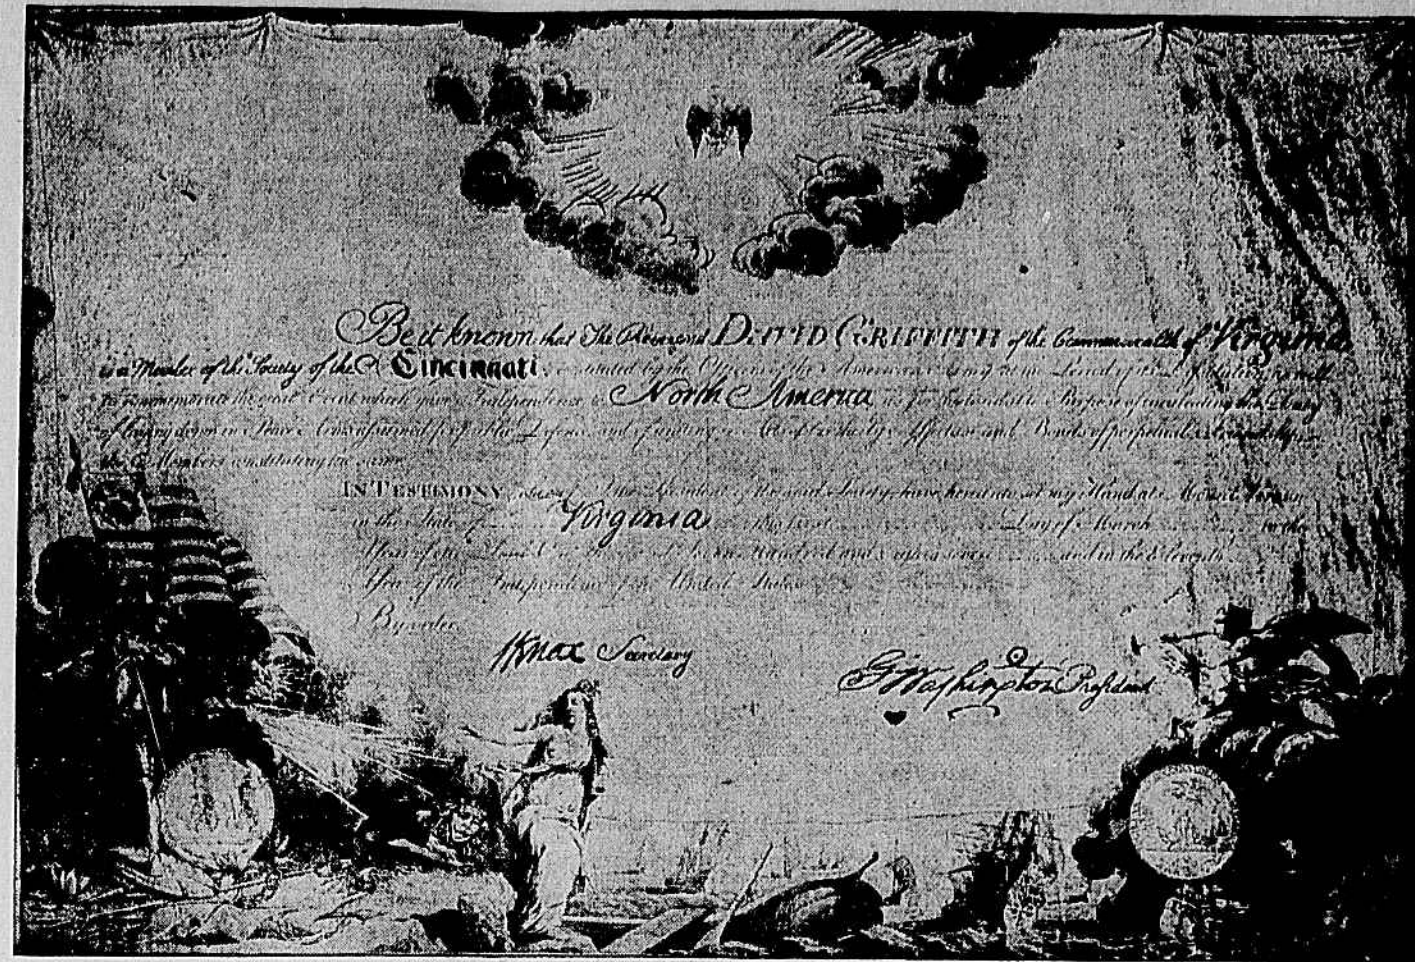 Be it known that The Reverend DAVID GRIFFITH of the Commonwealth of Virginia
is a Member of the Society of the Cincinnati; instituted by the Officers of the American Army at the Period of its
to commemorate the great Event which gave Independence to North America as for the laudable Purpose of inculcating the Duty
of laying down in Peace Arms assumed for public Defence and of uniting in Acts of brotherly Affection and Bonds of perpetual Friendship
the Members constituting the same
IN TESTIMONY whereof I the President of the said Society have hereunto set my Hand at Mount Vernon
in the State of Virginia this first Day of March in the
Year of the Lord One Thousand Seven Hundred and and in the Eleventh
Year of the Independence of the United States
By order
HKnox Secretary
GWashington President